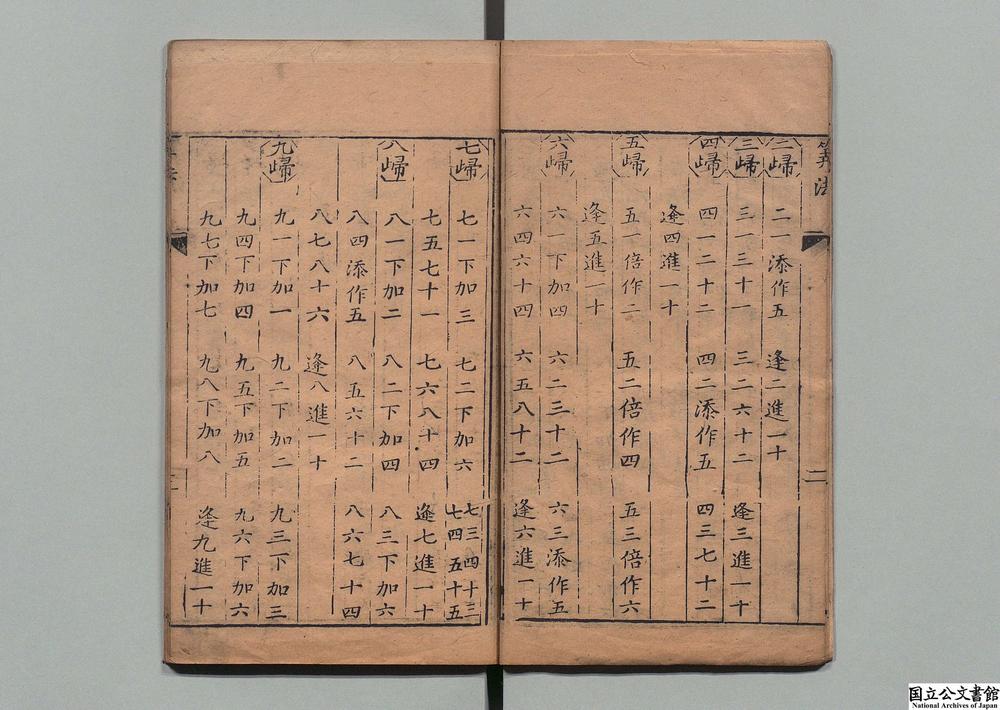 筭法
二
二歸 二一添作五 逢二進一十
三歸 三一三十一 三二六十二 逢三進一十
四歸 四一二十二 四二添作五 四三七十二
逢四進一十
五歸 五一倍作二 五二倍作四 五三倍作六
逢五進一十
六歸 六一下加四 六二三十二 六三添作五
六四六十四 六五八十二 逢六進一十
七歸 七一下加三 七二下加六 七三四十二
七四五十五
七五七十一 七六八十四 逢七進一十
八歸 八一下加二 八二下加四 八三下加六
八四添作五 八五六十二 八六七十四
八七八十六 逢八進一十
九歸 九一下加一 九二下加二 九三下加三
九四下加四 九五下加五 九六下加六
九七下加七 九八下加八 逢九進一十
国立公文書館
National Archives of Japan